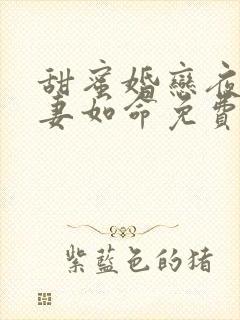 甜蜜婚戀夜
妻如命免費
紫藍色的猪